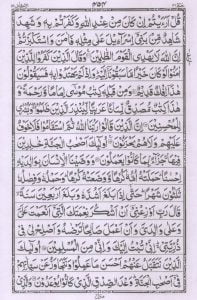 ۴۵۴
قُلْ اَرَءَيْتُمْ اِنْ كَانَ مِنْ عِنْدِ اللّٰهِ وَكَفَرْتُمْ بِهٖ وَشَهِدَ
شَاهِدٌ مِّنْۢ بَنِيْٓ اِسْرَآءِيْلَ عَلٰى مِثْلِهٖ فَاٰمَنَ وَاسْتَكْبَرْتُمْ
اِنَّ اللّٰهَ لَا يَهْدِى الْقَوْمَ الظّٰلِمِيْنَ وَقَالَ الَّذِيْنَ كَفَرُوْا لِلَّذِيْنَ
اٰمَنُوْا لَوْ كَانَ خَيْرًا مَّا سَبَقُوْنَآ اِلَيْهِ وَاِذْ لَمْ يَهْتَدُوْا بِهٖ فَسَيَقُوْلُوْنَ
هٰذَآ اِفْكٌ قَدِيْمٌ وَمِنْ قَبْلِهٖ كِتٰبُ مُوْسٰٓى اِمَامًا وَّرَحْمَةً وَ
هٰذَا كِتٰبٌ مُّصَدِّقٌ لِّسَانًا عَرَبِيًّا لِّيُنْذِرَ الَّذِيْنَ ظَلَمُوْا وَبُشْرٰى
لِلْمُحْسِنِيْنَ اِنَّ الَّذِيْنَ قَالُوْا رَبُّنَا اللّٰهُ ثُمَّ اسْتَقَامُوْا فَلَا خَوْفٌ
عَلَيْهِمْ وَلَا هُمْ يَحْزَنُوْنَ اُولٰٓئِكَ اَصْحٰبُ الْجَنَّةِ خٰلِدِيْنَ
فِيْهَا جَزَآءًۢ بِمَا كَانُوْا يَعْمَلُوْنَ وَوَصَّيْنَا الْاِنْسَانَ بِوَالِدَيْهِ
اِحْسٰنًا حَمَلَتْهُ اُمُّهٗ كُرْهًا وَّوَضَعَتْهُ كُرْهًا وَحَمْلُهٗ وَفِصٰلُهٗ
ثَلٰثُوْنَ شَهْرًا حَتّٰٓى اِذَا بَلَغَ اَشُدَّهٗ وَبَلَغَ اَرْبَعِيْنَ سَنَةً
قَالَ رَبِّ اَوْزِعْنِيْٓ اَنْ اَشْكُرَ نِعْمَتَكَ الَّتِيْٓ اَنْعَمْتَ عَلَيَّ
وَعَلٰى وَالِدَيَّ وَاَنْ اَعْمَلَ صَالِحًا تَرْضٰىهُ وَاَصْلِحْ لِيْ فِيْ
ذُرِّيَّتِيْ اِنِّيْ تُبْتُ اِلَيْكَ وَاِنِّيْ مِنَ الْمُسْلِمِيْنَ اُولٰٓئِكَ
الَّذِيْنَ نَتَقَبَّلُ عَنْهُمْ اَحْسَنَ مَا عَمِلُوْا وَنَتَجَاوَزُ عَنْ سَيِّاٰتِهِمْ
فِيْٓ اَصْحٰبِ الْجَنَّةِ وَعْدَ الصِّدْقِ الَّذِيْ كَانُوْا يُوْعَدُوْنَ وَالَّذِيْ